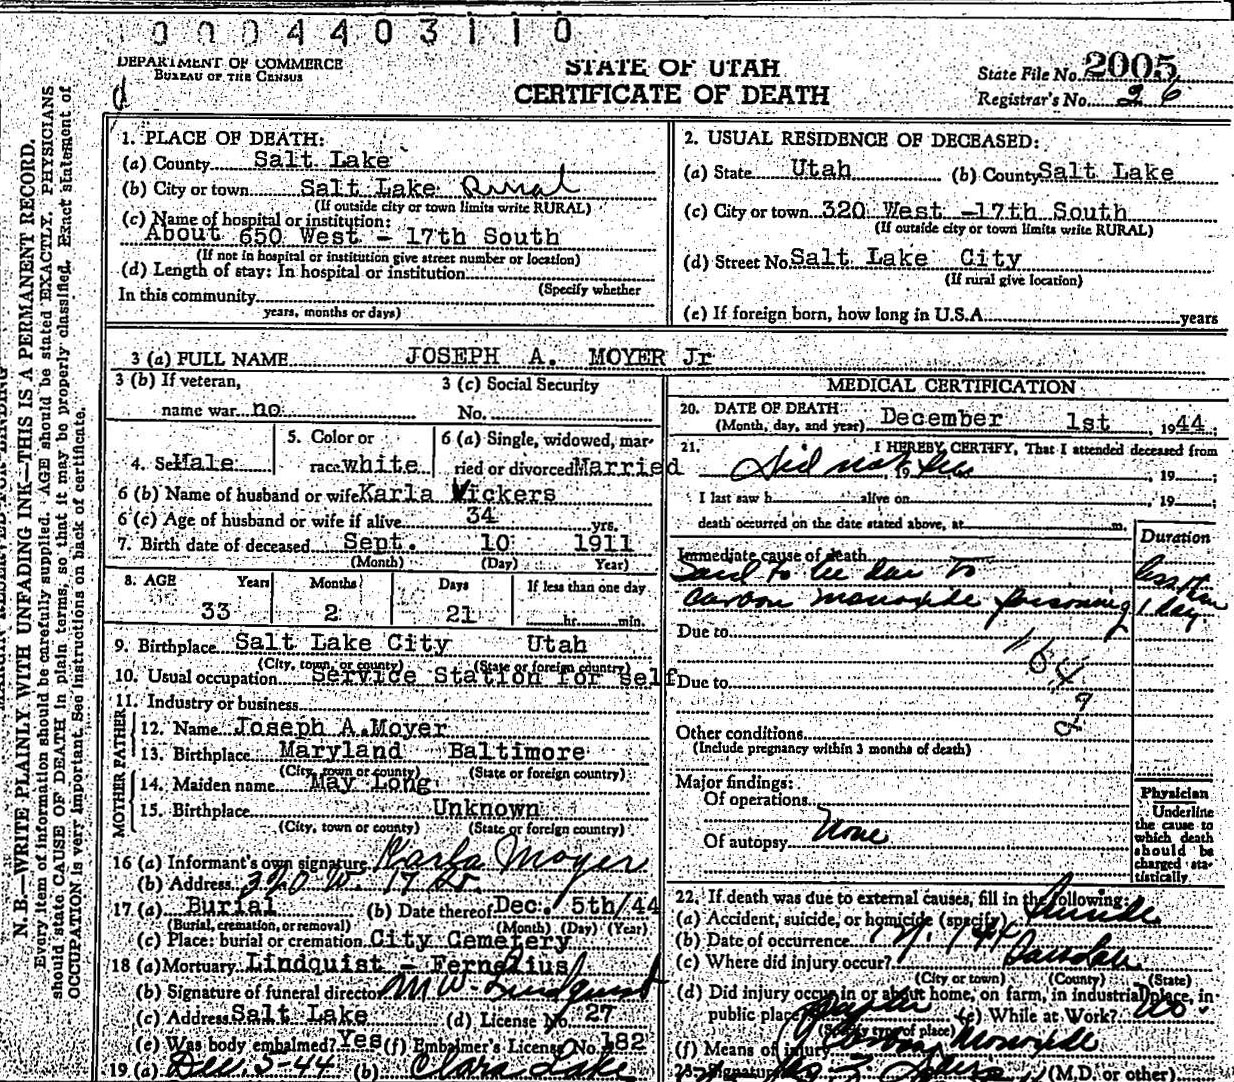 0004403110
DEPARTMENT OF COMMERCE
BUREAU OF THE CENSUS
STATE OF UTAH
CERTIFICATE OF DEATH
State File No. 2005
Registrar's No. 26
N. B.—WRITE PLAINLY WITH UNFADING INK—THIS IS A PERMANENT RECORD.
Every item of information should be carefully supplied. AGE should be stated EXACTLY. PHYSICIANS
should state CAUSE OF DEATH in plain terms, so that it may be properly classified. Exact statement of
OCCUPATION is very important. See instructions on back of certificate.
1. PLACE OF DEATH:
(a) County Salt Lake
(b) City or town Salt Lake Rural
(If outside city or town limits write RURAL)
(c) Name of hospital or institution:
About 650 West - 17th South
(If not in hospital or institution give street number or location)
(d) Length of stay: In hospital or institution
(Specify whether
In this community
years, months or days)
2. USUAL RESIDENCE OF DECEASED:
(a) State Utah (b) County Salt Lake
(c) City or town 320 West -17th South
(If outside city or town limits write RURAL)
(d) Street No. Salt Lake City
(If rural give location)
(e) If foreign born, how long in U.S.A. years
3 (a) FULL NAME JOSEPH A. MOYER Jr
3 (b) If veteran, 3 (c) Social Security
name war no No.
4. Sex Male 5. Color or race white 6 (a) Single, widowed, mar-
ried or divorced Married
6 (b) Name of husband or wife Karla Vickers
6 (c) Age of husband or wife if alive 34 yrs.
7. Birth date of deceased Sept. 10 1911
(Month) (Day) Year)
8. AGE Years Months Days If less than one day
33 2 21 hr. min.
9. Birthplace Salt Lake City Utah
(City, town, or county) (State or foreign country)
10. Usual occupation Service Station for self
11. Industry or business
FATHER
12. Name Joseph A.Moyer
13. Birthplace Maryland Baltimore
(City, town or county) (State or foreign country)
MOTHER
14. Maiden name May Long
15. Birthplace Unknown
(City, town or county) (State or foreign country)
16 (a) Informant's own signature Karla Moyer
(b) Address 320 W. 17 So.
17 (a) Burial (b) Date thereof Dec. 5th/44
(Burial, cremation, or removal) (Month) (Day) (Year)
(c) Place: burial or cremation City Cemetery
18 (a) Mortuary Lindquist - Fernelius
(b) Signature of funeral director M W Lindquist
(c) Address Salt Lake (d) License No. 27
(e) Was body embalmed? Yes (f) Embalmer's License No. 182
19 (a) Dec. 5-44 (b) Clara Lake
MEDICAL CERTIFICATION
20. DATE OF DEATH
(Month, day, and year) December 1st , 1944;
21. I HEREBY CERTIFY, That I attended deceased from
Did not see , 19 , 19 ;
I last saw h alive on , 19 ;
death occurred on the date stated above, at m.
Duration
Immediate cause of death
Said to be due to less than
carbon monoxide poisoning 1 day
Due to
164
Due to
Other conditions
(Include pregnancy within 3 months of death)
Major findings:
Of operations
Of autopsy None
Physician
Underline
the cause to
which death
should be
charged sta-
tistically.
22. If death was due to external causes, fill in the following:
(a) Accident, suicide, or homicide (specify) Suicide
(b) Date of occurrence
(c) Where did injury occur?
(City or town) (County) (State)
(d) Did injury occur in or about home, on farm, in industrial place, in
public place (e) While at Work? No.
(Specify type of place)
(f) Means of injury Carbon Monoxide
23. Signature (M.D. or other)